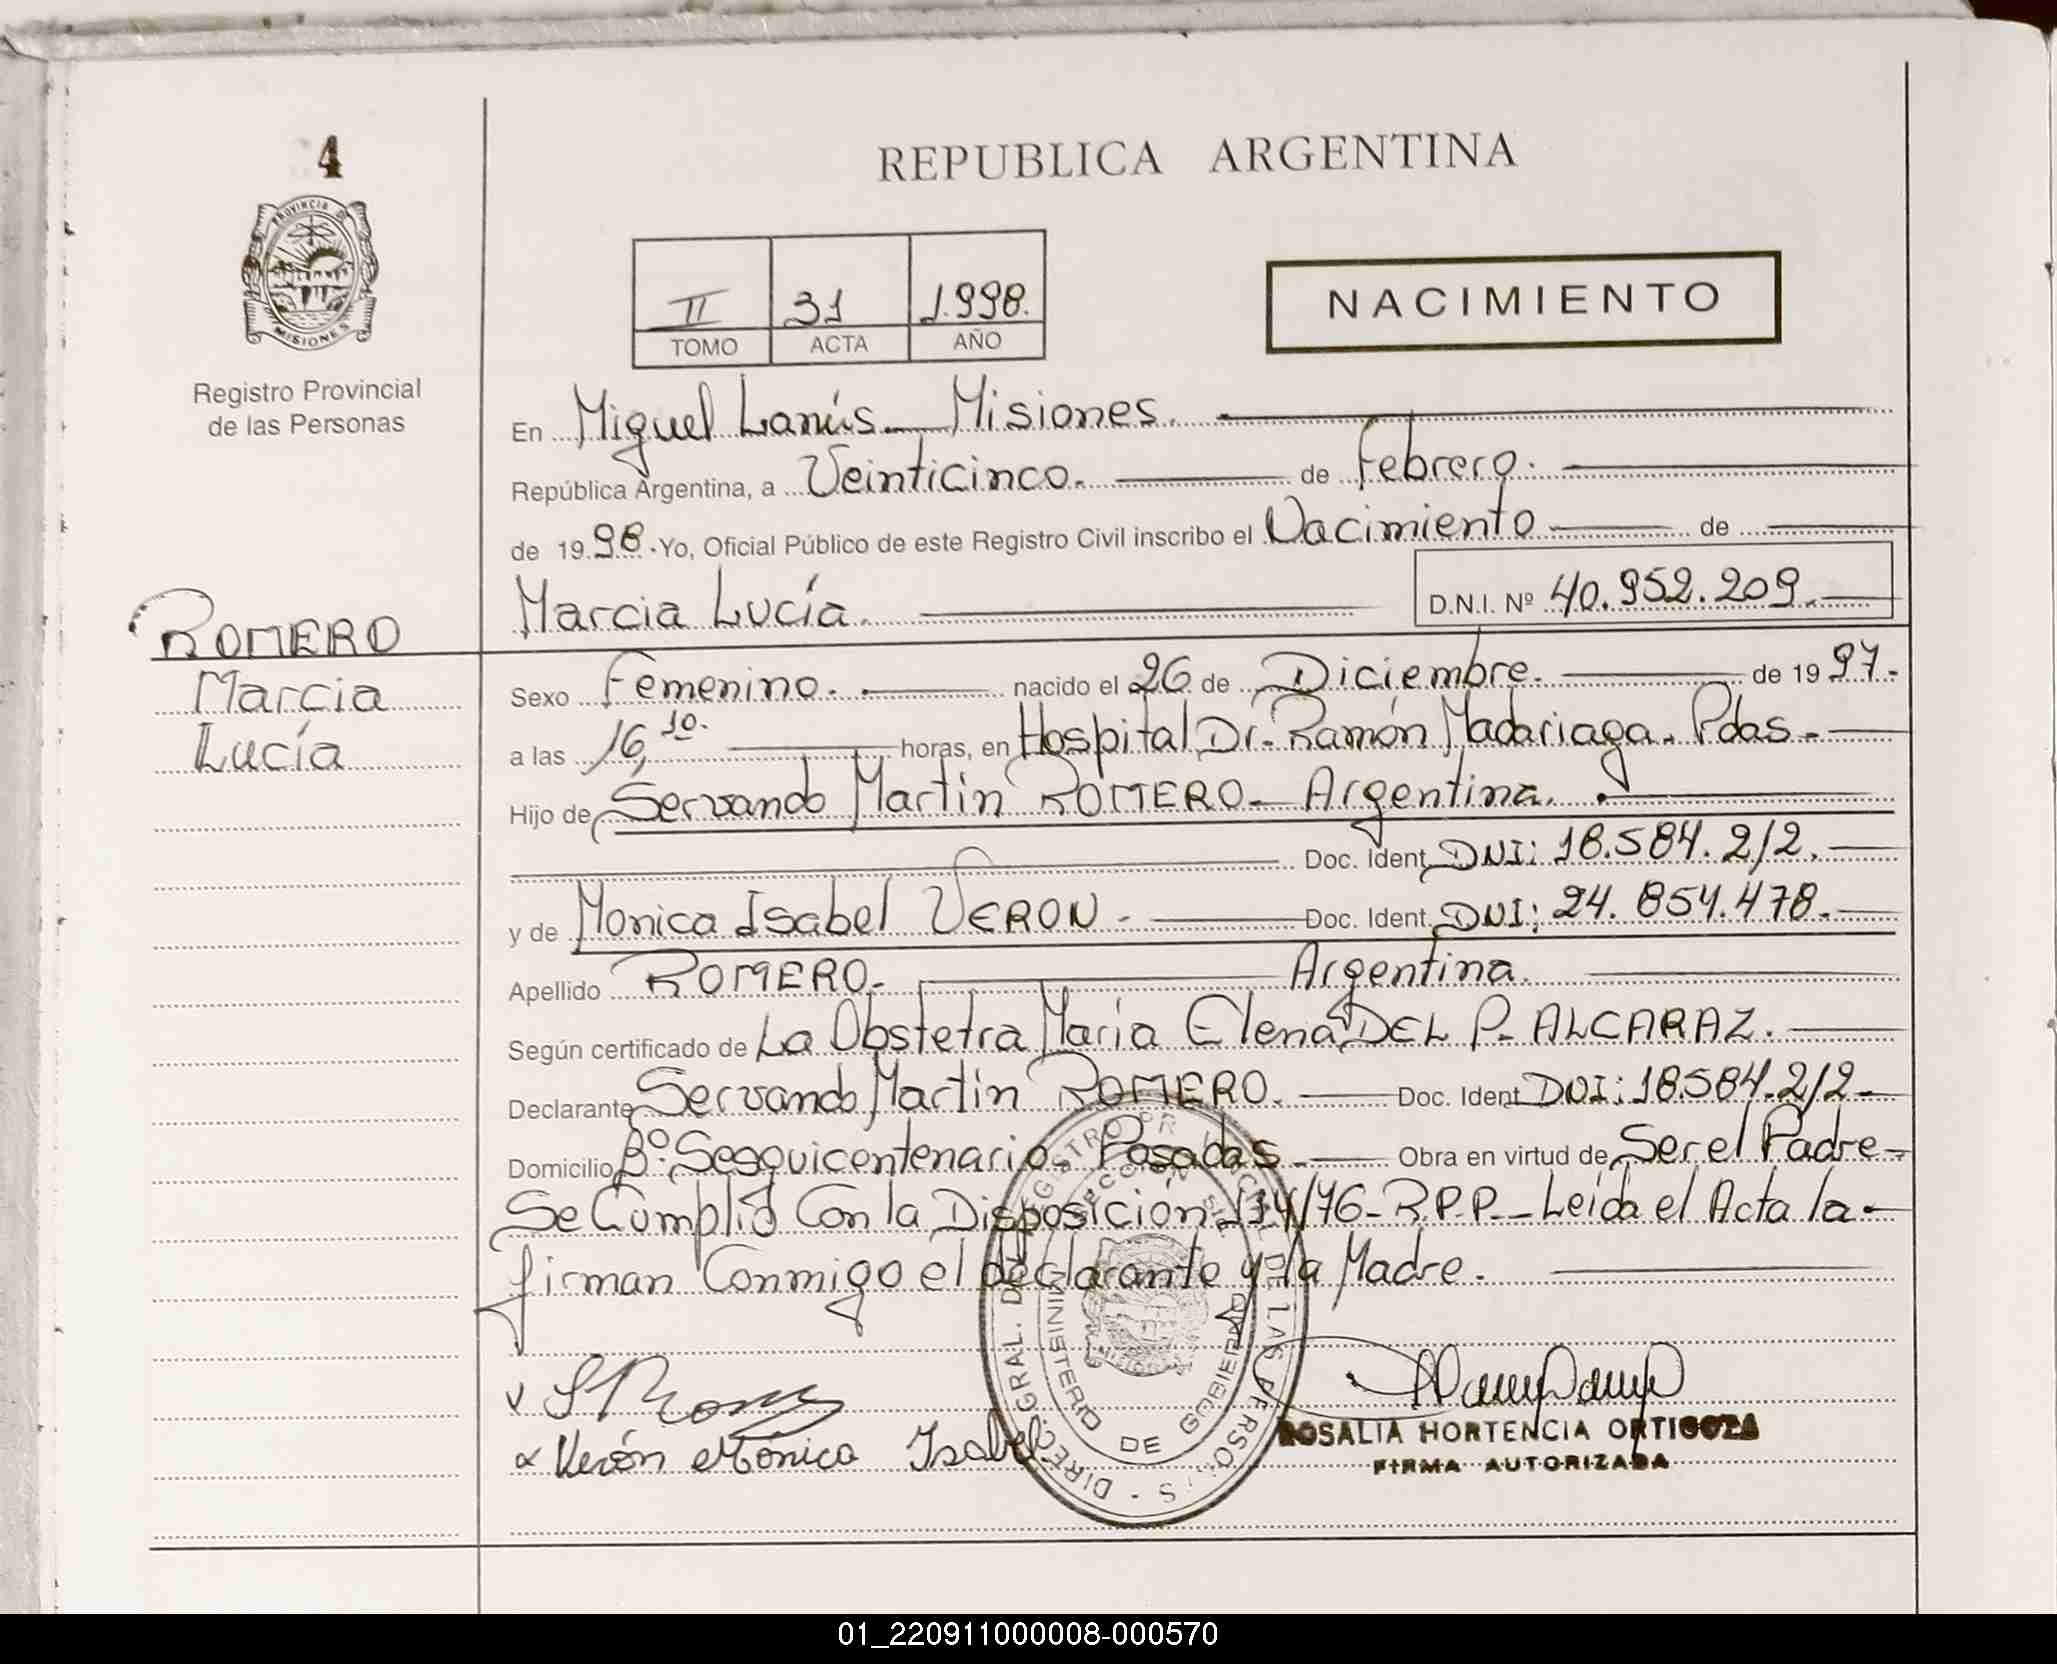 4
REPUBLICA ARGENTINA
PROVINCIA DE MISIONES
Registro Provincial
de las Personas
II 31 1.998.
TOMO ACTA AÑO
NACIMIENTO
En Miguel Lanús - Misiones.
República Argentina, a Veinticinco. de Febrero.
de 19 98. Yo, Oficial Público de este Registro Civil inscribo el Nacimiento de
Marcia Lucía. D.N.I. Nº 40.952.209.
ROMERO
Marcia
Lucía
Sexo Femenino. nacido el 26 de Diciembre. de 19 97.
a las 16,10. horas, en Hospital Dr. Ramón Madariaga. Pdas.
Hijo de Servando Martin ROMERO - Argentina.
Doc. Ident. DNI: 18.584.212.
y de Monica Isabel VERON. Doc. Ident. DNI: 24.854.478.
Apellido ROMERO. Argentina.
Según certificado de La Obstetra Maria Elena DEL P. ALCARAZ.
Declarante Servando Martin ROMERO. Doc. Ident. DNI: 18.584.212
Domicilio Bº: Sesquicentenario - Posadas. Obra en virtud de Ser el Padre
Se Cumplió Con la Disposición 134/76 - R.P.P. - Leída el Acta la
firman Conmigo el declarante y la Madre.
Verón Mónica Isabel
ROSALIA HORTENCIA ORTIGOZA
FIRMA AUTORIZADA
MINISTERIO DE GOBIERNO
01_220911000008-000570